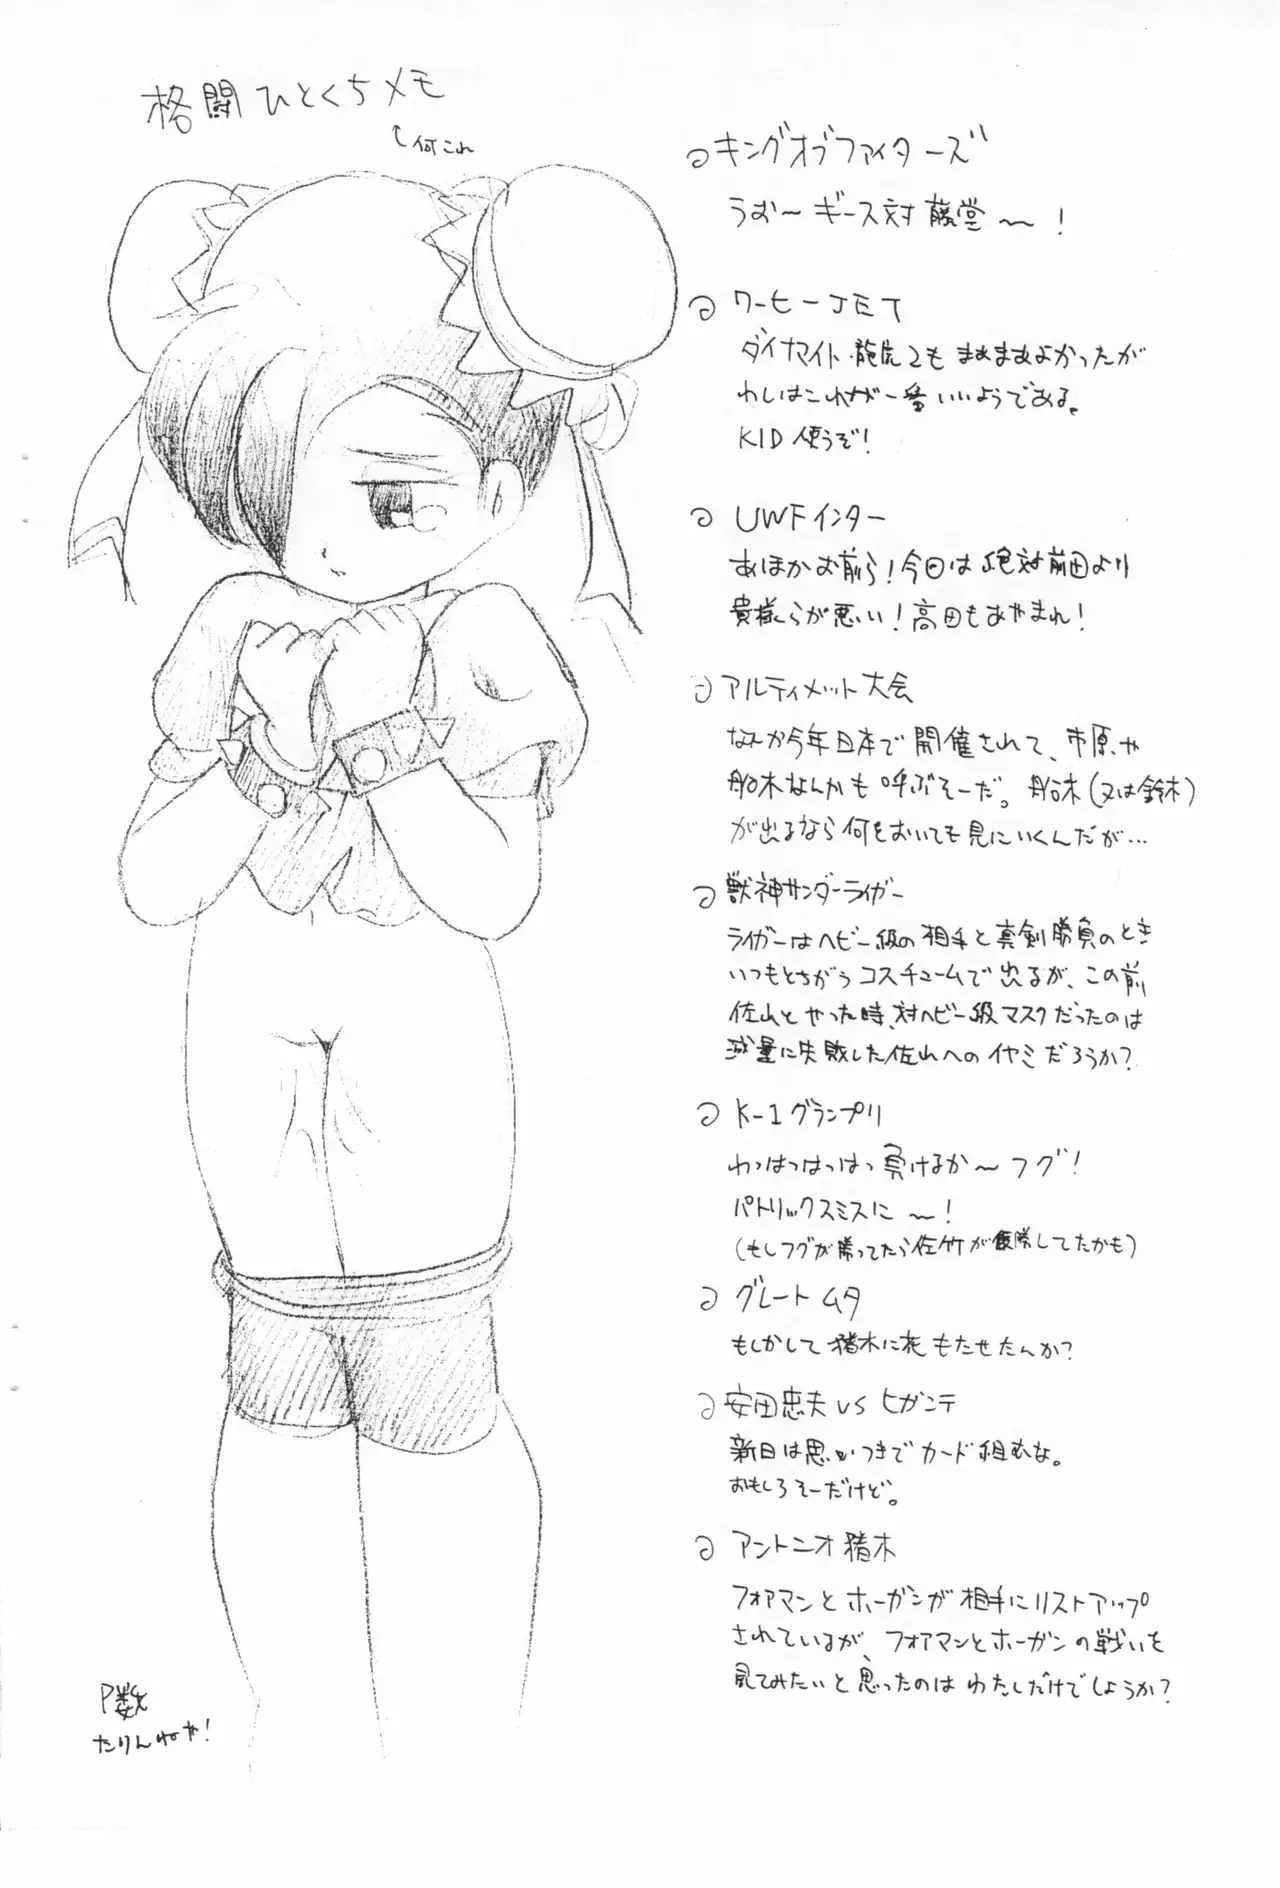 格闘ひとくちメモ
↑何これ
キングオブファイターズ
うむ〜ギース対藤堂〜!
ワーヒーJET
ダイナマイト・龍虎2もまあまあよかったが
わしはこれが一番いいようである。
KID使うぞ!
UWFインター
あほかお前ら!今回は絶対前田より
貴様らが悪い!高田もあやまれ!
アルティメット大会
なんか今年日本で開催されて、市原や
船木なんかも呼ぶそーだ。船木(又は鈴木)
が出るなら何をおいても見にいくんだが…
獣神サンダーライガー
ライガーはヘビー級の相手と真剣勝負のとき
いつもとちがうコスチュームで出るが、この前
佐山とやった時、対ヘビー級マスクだったのは
減量に失敗した佐山へのイヤミだろうか?
K-1グランプリ
わっはっはっはっ負けるか〜フグ!
パトリックスミスに〜!
(もしフグが勝ってたら佐竹が優勝してたかも)
グレートムタ
もしかして猪木に花もたせたんか?
安田忠夫VSヒガンテ
新日は思いつきでカード組むな。
おもしろそーだけど。
アントニオ猪木
フォアマンとホーガンが相手にリストアップ
されているが、フォアマンとホーガンの戦いを
見てみたいと思ったのはわたしだけでしょうか?
P数
たりんねや!